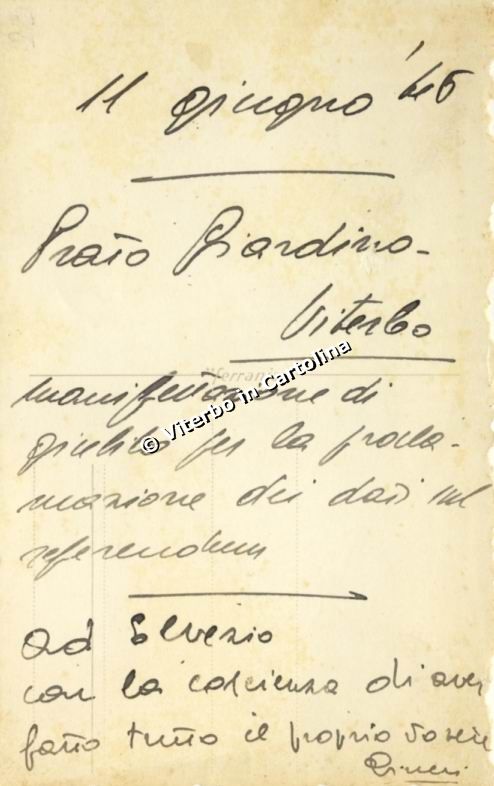 11 giugno '46
Prato Giardino -
Viterbo
Ferrania
© Viterbo in Cartolina
Manifestazione di
giubilo per la procla-
mazione dei dati sul
referendum
ad Elvezio
con la coscienza di aver
fatto tutto il proprio dovere